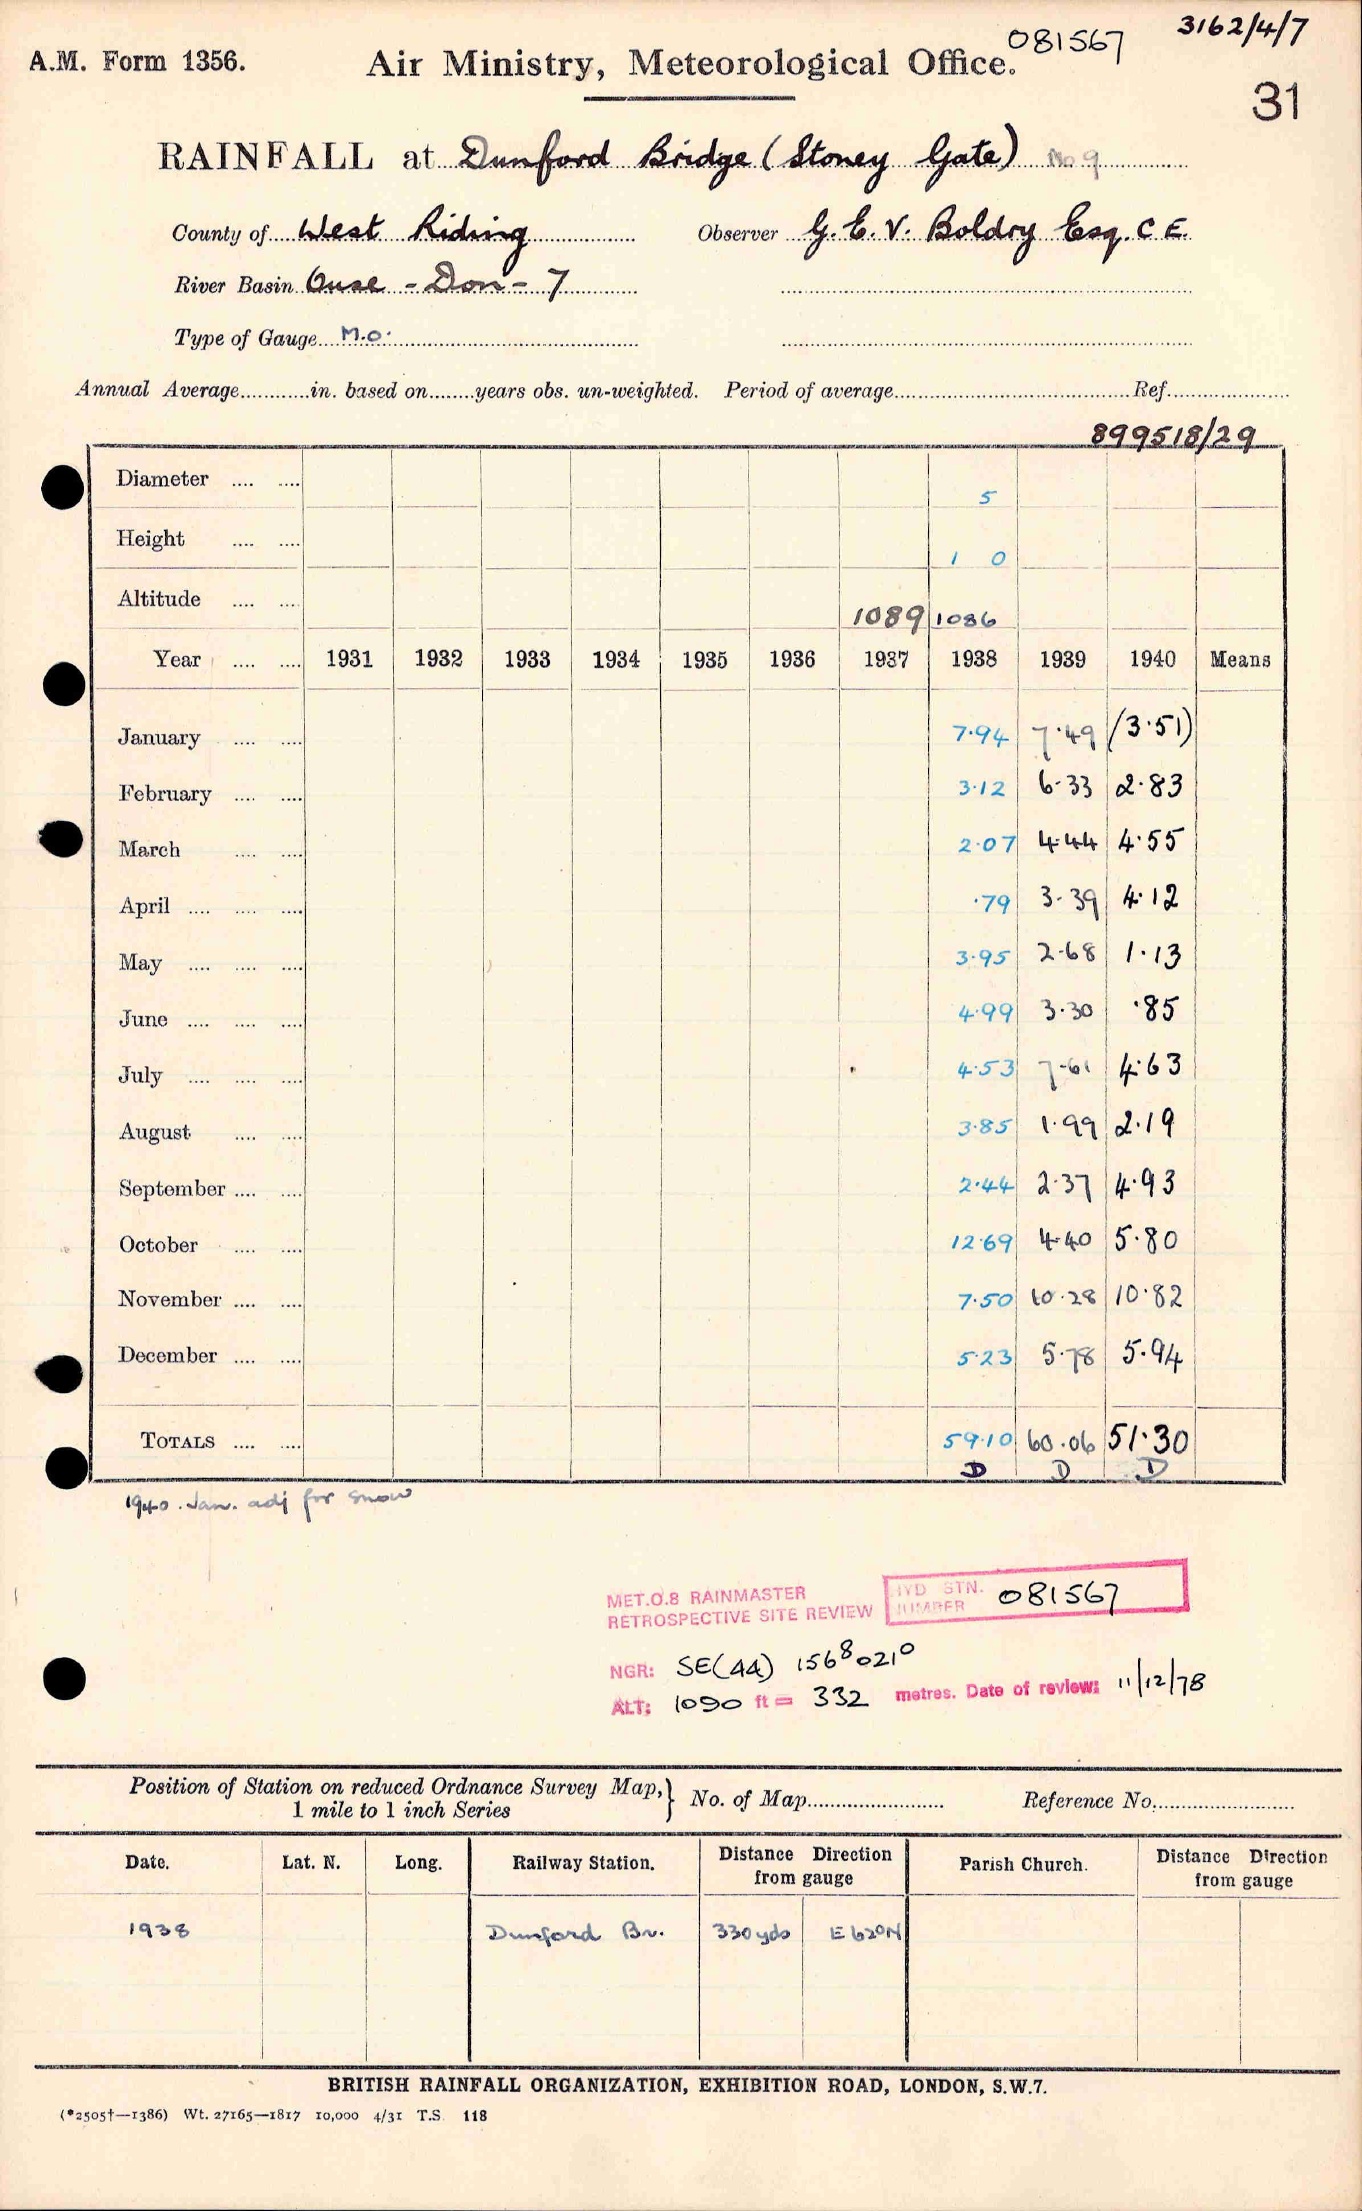 3162/4/7
081567
A.M. Form 1356. Air Ministry, Meteorological Office.
31
RAINFALL at Dunford Bridge (Stoney Gate) No 9
County of West Riding Observer G. E. V. Boldry Esq. C.E.
River Basin Ouse - Don - 7
Type of Gauge M.O.
Annual Average............in. based on........years obs. un-weighted. Period of average........................Ref.....................
899518/29
Diameter .... .... 5
Height .... .... 1 0
Altitude .... .... 1089 1086
Year .... .... 1931 1932 1933 1934 1935 1936 1937 1938 1939 1940 Means
January .... .... 7.94 7.49 (3.51)
February .... .... 3.12 6.33 2.83
March .... .... 2.07 4.44 4.55
April .... .... .... .79 3.39 4.12
May .... .... .... 3.95 2.68 1.13
June .... .... .... 4.99 3.30 .85
July .... .... .... 4.53 7.61 4.63
August .... .... 3.85 1.99 2.19
September .... .... 2.44 2.37 4.93
October .... .... 12.69 4.40 5.80
November .... .... 7.50 10.28 10.82
December .... .... 5.23 5.78 5.94
TOTALS .... .... 59.10 60.06 51.30
D D D
1940. Jan. adj for snow
MET.O.8 RAINMASTER
RETROSPECTIVE SITE REVIEW
HYD STN.
NUMBER 081567
NGR: SE(44) 1568 0210
ALT: 1090 ft = 332 metres. Date of review: 11/12/78
Position of Station on reduced Ordnance Survey Map,} No. of Map........................ Reference No.........................
1 mile to 1 inch Series
Date. Lat. N. Long. Railway Station. Distance Direction from gauge Parish Church. Distance Direction from gauge
1938 Dunford Br. 330 yds E62°N
BRITISH RAINFALL ORGANIZATION, EXHIBITION ROAD, LONDON, S.W.7.
(*2505†—1386) Wt. 27165—1817 10,000 4/31 T.S. 118